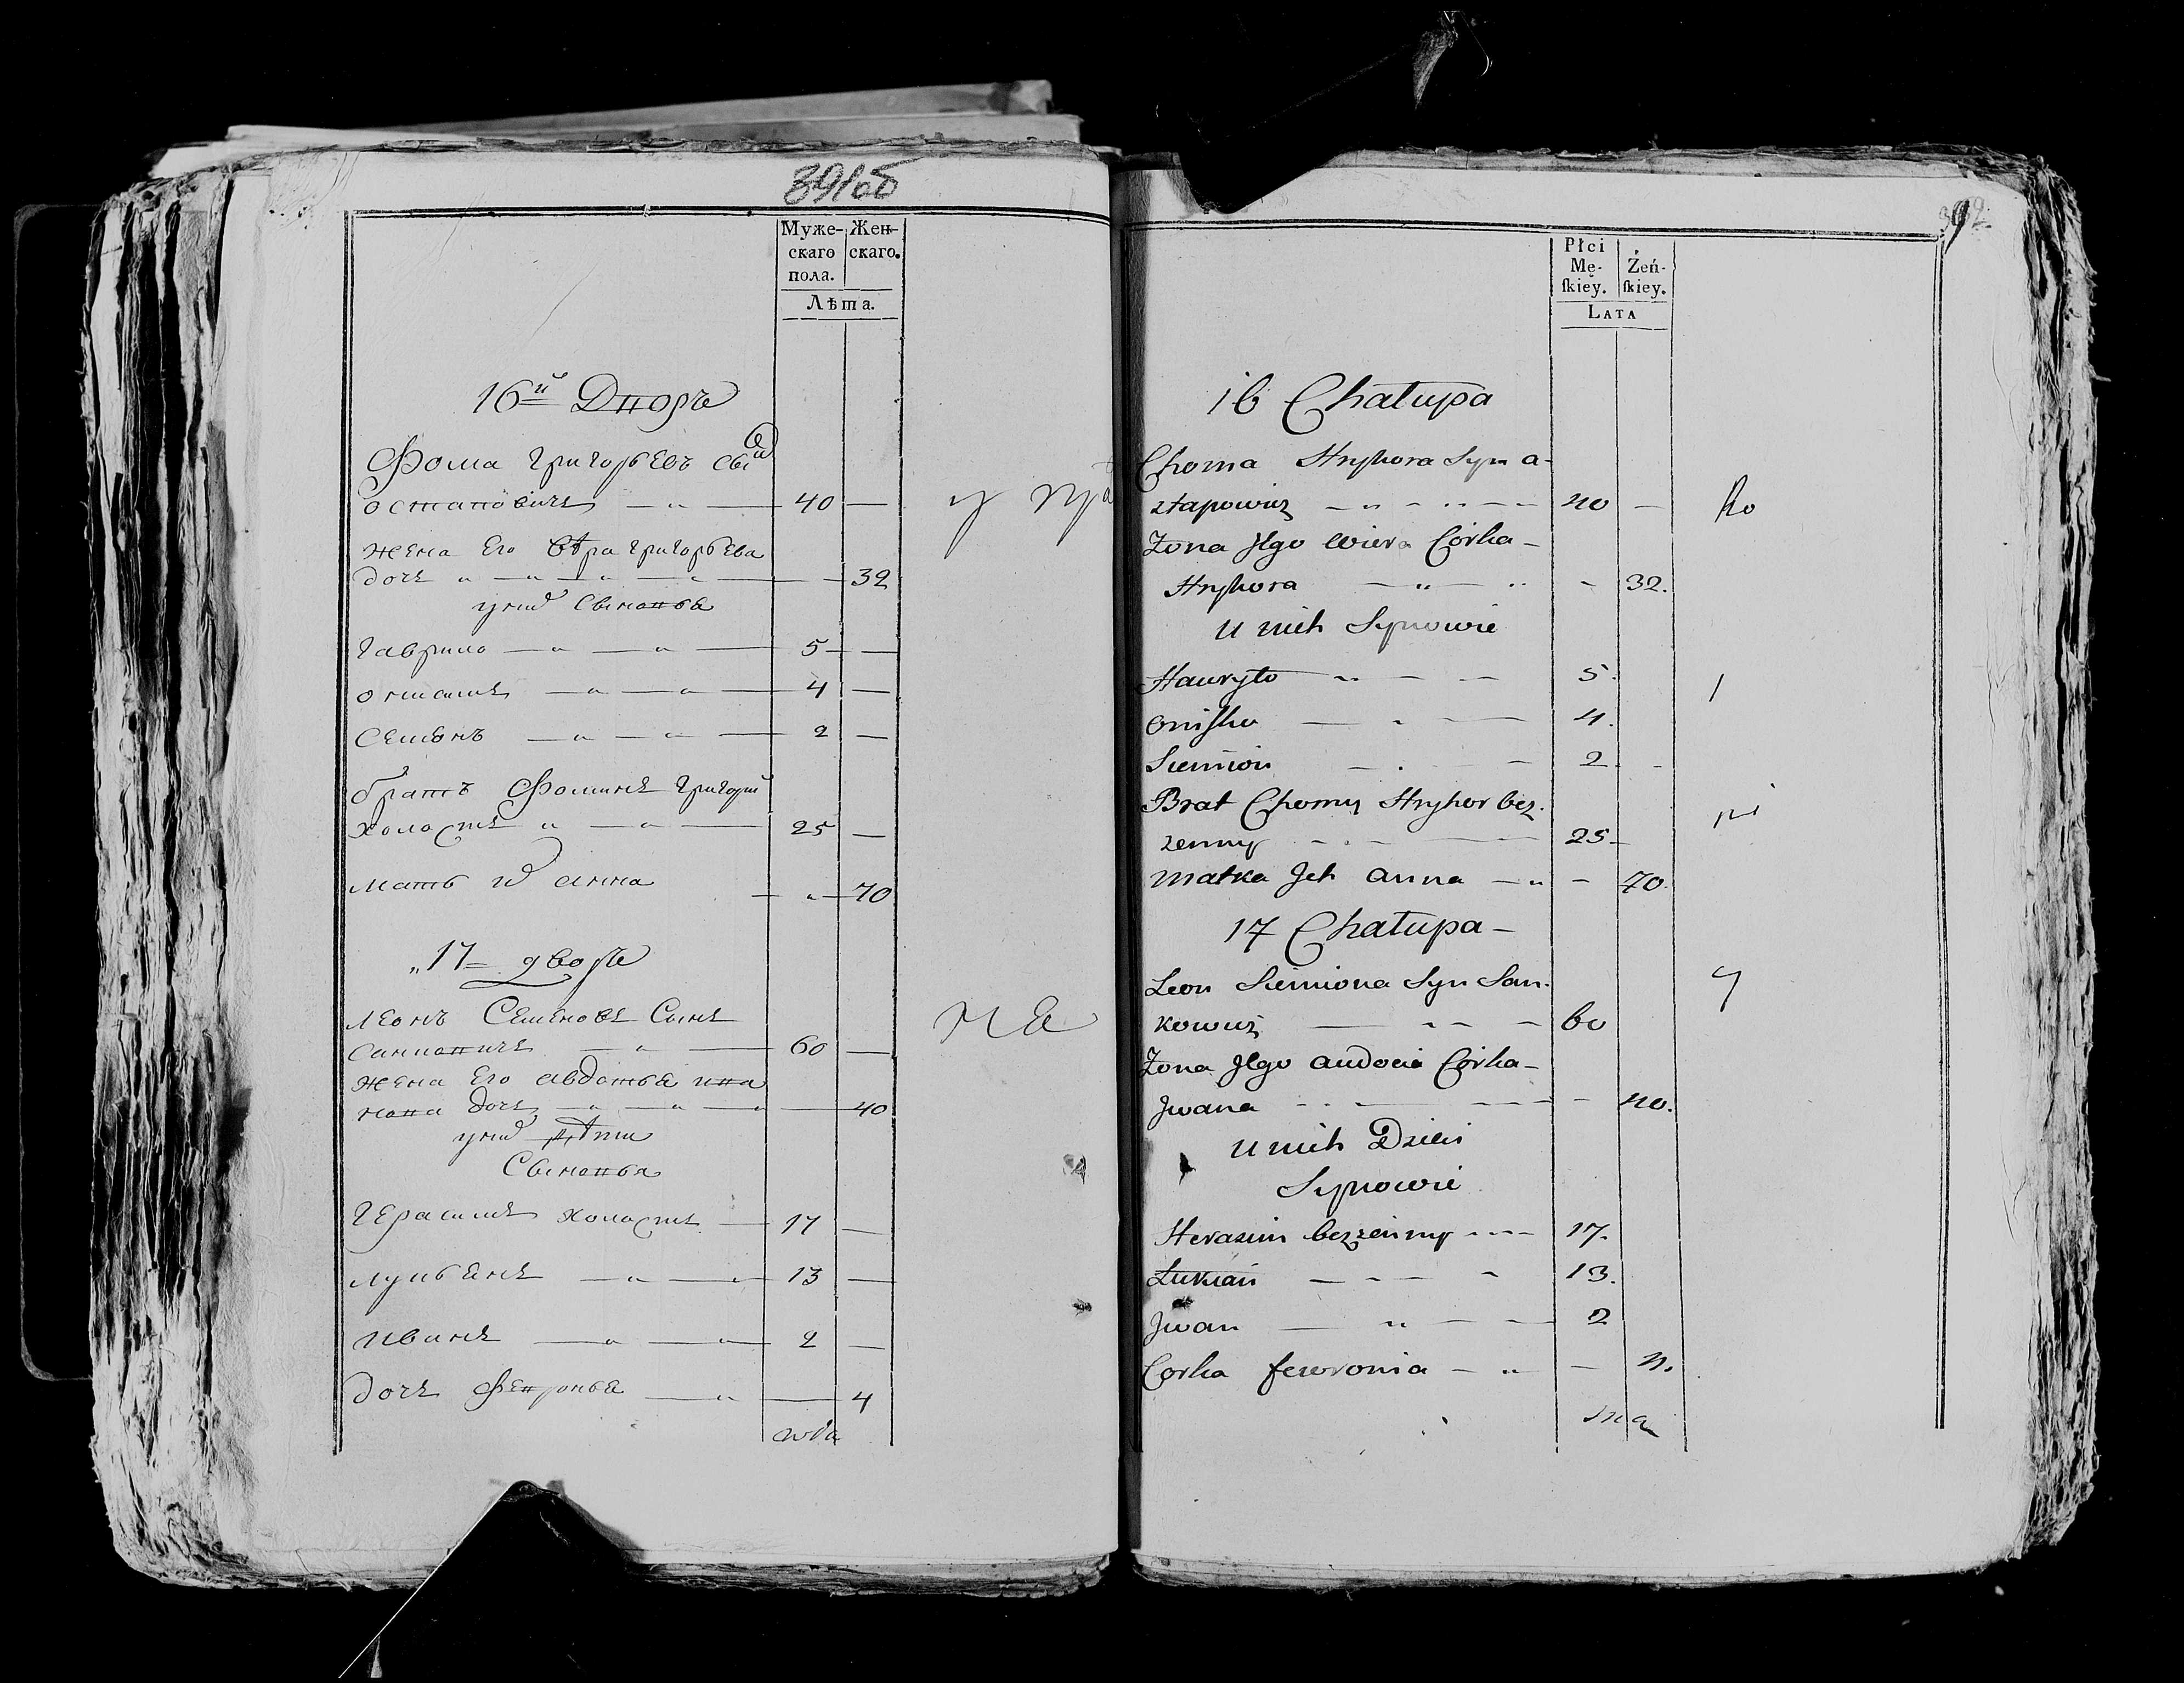 391об
Муже-
скаго
пола.
Жен-
скаго.
Лѣта.
16й Дворъ
Фома Григорьевъ сынъ
остаповичъ 40 —
жена Его вѣра григорьева
дочь — 32
у них Сыновья
Гаврило 5 —
онисимъ 4 —
Семіонъ 2 —
братъ Фоминъ григорій
холостъ 25 —
мать их анна — 70
17 дворъ
леонъ Семеновъ Сынъ
санковичъ 60 —
жена Его авдотья ива
нова дочь — 40
у них дѣти
Сыновья
Герасимъ холостъ 17 —
лукьянъ 13 —
иванъ 2 —
дочь февронья — 4
392
Płci
Mę-
ſkiey.
Żeń-
ſkiey.
LATA
16 Chałupa
Choma Hryhora Syn a-
stapowicz 40 —
Żona Jego wiera Córka-
Hryhora - 32.
U nich Synowie
Hawryło 5.
Oniſko 4.
Siemion 2.
Brat Chomy Hryhor bez-
żenny 25
Matka Jch anna — 70.
17 Chałupa —
Leon Siemiona Syn San-
kowicz 60
Żona Jego audocia Córka-
Jwana — 40.
U nich Dzieci
Synowie
Herasim bezżenny 17.
Łukian 13.
Jwan 2
Corka fewronia — 4.